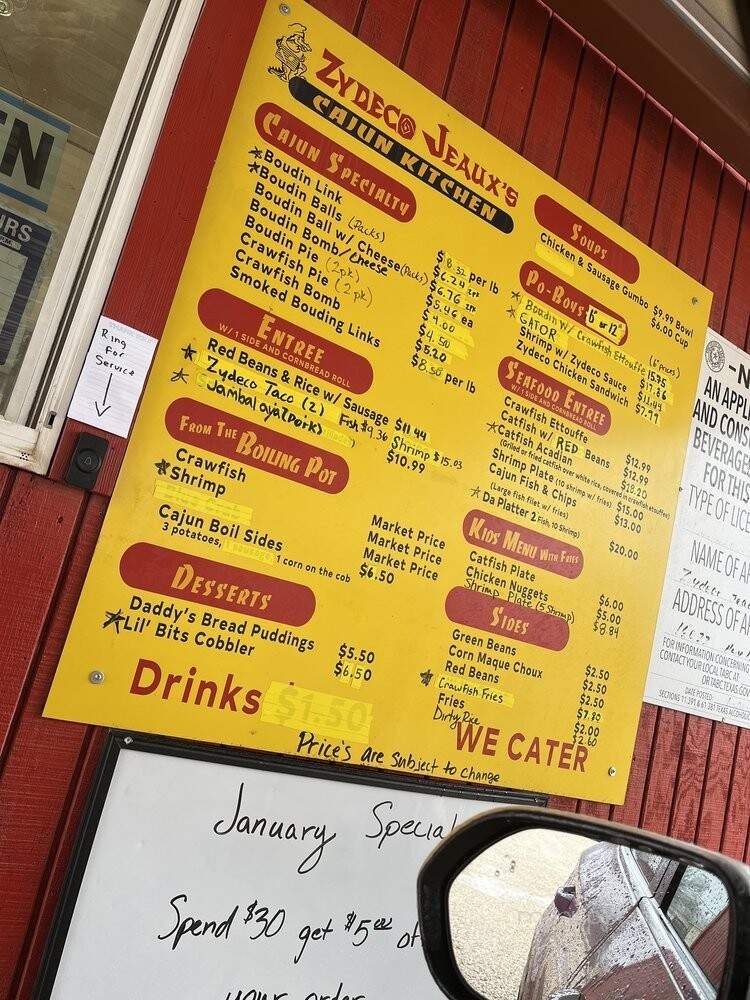 ZYDECO JEAUX'S
CAJUN KITCHEN
CAJUN SPECIALTY
Boudin Link $8.32 per lb
Boudin Balls (Packs) $6.24
Boudin Ball w/ Cheese (Packs) $6.76
Boudin Bomb/cheese $5.46 ea
Boudin Pie (2pk) $4.00
Crawfish Pie (2pk) $4.50
Crawfish Bomb $5.20
Smoked Bouding Links $8.58 per lb
ENTREE
W/ 1 SIDE AND CORNBREAD ROLL
Red Beans & Rice w/ Sausage $11.44
Zydeco Taco (2) Fish $9.36 Shrimp $15.03
Jambalaya (Pork) $10.99
FROM THE BOILING POT
Crawfish Market Price
Shrimp Market Price
Market Price
Cajun Boil Sides $6.50
3 potatoes, 1 sausage, 1 corn on the cob
DESSERTS
Daddy's Bread Puddings $5.50
Lil' Bits Cobbler $6.50
Drinks $1.50
SOUPS
Chicken & Sausage Gumbo $9.99 Bowl
$6.00 Cup
PO-BOYS 6" or 12"
Boudin w/ Crawfish Ettouffe (6" prices) 15.95
GATOR $17.86
Shrimp w/ Zydeco Sauce $11.44
Zydeco Chicken Sandwich $7.99
SEAFOOD ENTREE
W/ 1 SIDE AND CORNBREAD ROLL
Crawfish Ettouffe $12.99
Catfish w/ RED Beans $12.99
Catfish Acadian $18.20
(Grilled or fried catfish over white rice, covered in crawfish etouffee)
Shrimp Plate (10 shrimp w/ fries) $15.00
Cajun Fish & Chips $13.00
(Large fish filet w/ fries)
Da Platter 2 Fish, 10 Shrimp) $20.00
KIDS MENU WITH FRIES
Catfish Plate $6.00
Chicken Nuggets $5.00
Shrimp Plate (5 Shrimp) $8.84
SIDES
Green Beans $2.50
Corn Maque Choux $2.50
Red Beans $2.50
Crawfish Fries $7.80
Fries $2.00
Dirty Rice $2.60
WE CATER
Price's are subject to change
Ring
For
Service
January Special
Spend $30 get $5.00 of
your order
AN APPL
AND CONS
BEVERAGE
FOR THE
TYPE OF LIC
NAME OF A
ADDRESS OF A
FOR INFORMATION CONCERNING
CONTACT YOUR LOCAL TABC AT
OR TABC.TEXAS.GO
DATE POSTED